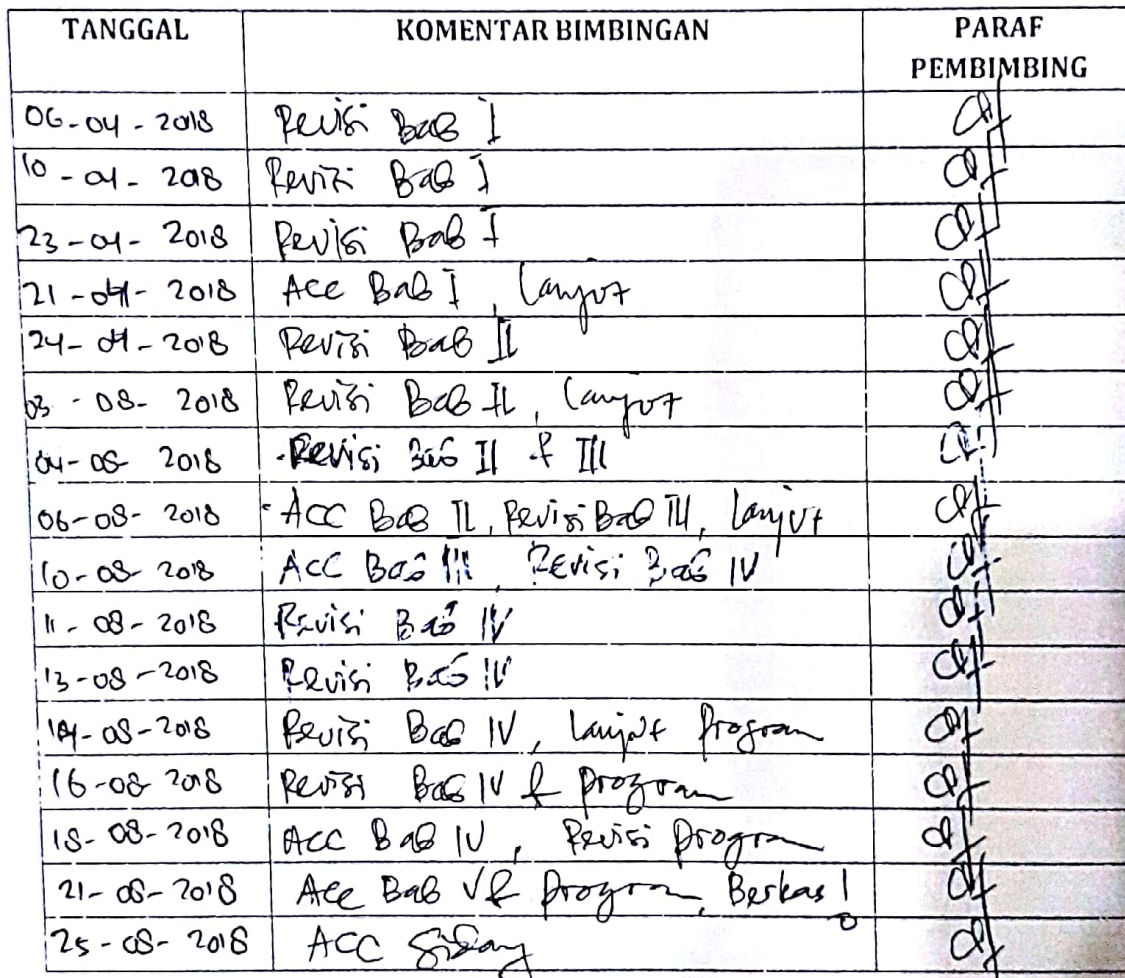 TANGGAL KOMENTAR BIMBINGAN PARAF
PEMBIMBING
06-04-2018 Revisi Bab I
10-04-2018 Revisi Bab I
23-04-2018 Revisi Bab I
21-04-2018 Acc Bab I, Lanjut
24-04-2018 Revisi Bab II
03-08-2018 Revisi Bab II, Lanjut
04-08-2018 Revisi Bab II & III
06-08-2018 ACC Bab II, Revisi Bab III, Lanjut
10-08-2018 ACC Bab III, Revisi Bab IV
11-08-2018 Revisi Bab IV
13-08-2018 Revisi Bab IV
14-08-2018 Revisi Bab IV, Lanjut Program
16-08-2018 Revisi Bab IV & program
18-08-2018 ACC Bab IV, Revisi Program
21-08-2018 Acc Bab V & program, Berkas!
25-08-2018 ACC Sidang